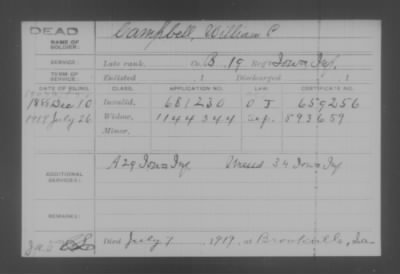 DEAD
NAME OF SOLDIER: Campbell, William P
SERVICE: Late rank, Co. B. 19 Reg't Iowa Inf.
TERM OF SERVICE: Enlisted 1 Discharged 1
DATE OF FILING. CLASS. APPLICATION NO. LAW. CERTIFICATE NO.
1888 Dec 10 Invalid, 681230 659256
1919 July 26 Widow, 1144344 593659
Minor,
ADDITIONAL SERVICES: A 29 Iowa Inf 34 Iowa Inf
REMARKS:
Died July 7 1919, at Ia